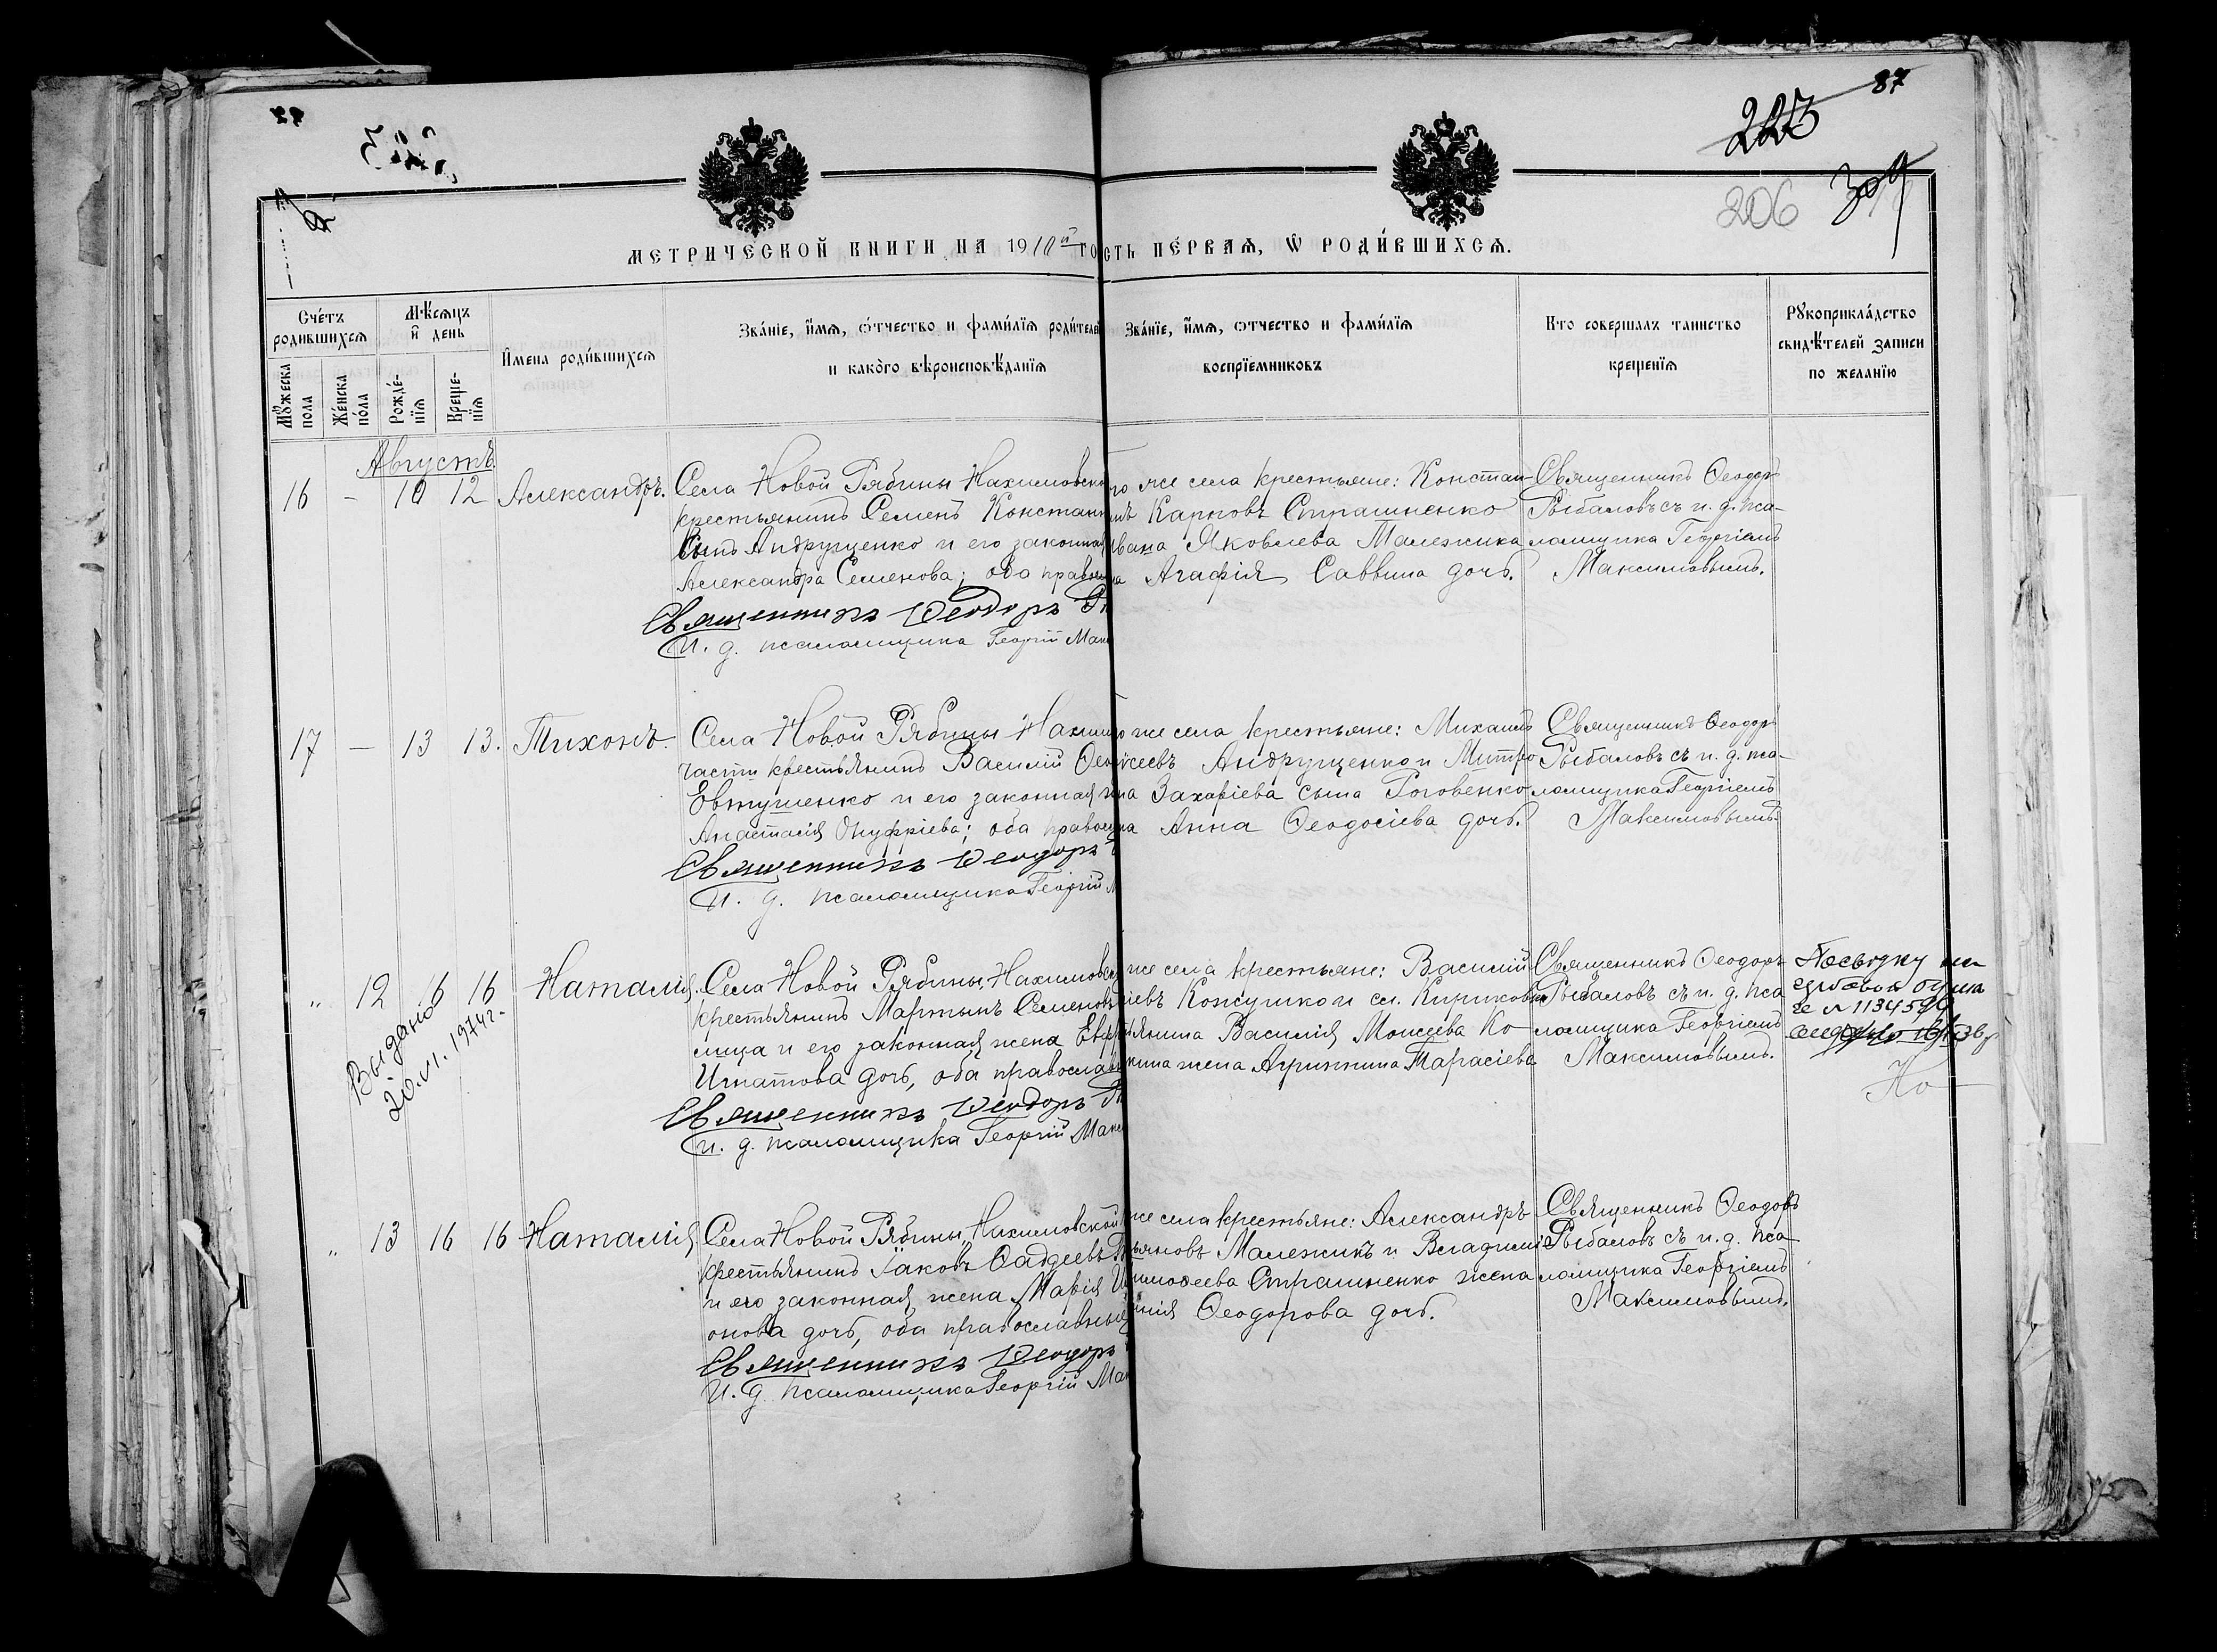 87
223
309
206
МЕТРИЧЕСКОЙ КНИГИ НА 1910й ГО
СТЬ ПЕ́РВАЯ, Ѡ РОДИ́ВШИХСЯ.
Сче́тъ родившихся
Мꙋжеска пола
Же́нска по́ла
Мѣ́сяцъ и҆ день
Рожде́нїя
Креще́нїя
И҆мена роди́вшихся
Зва́нїе, и҆́мя, ѻ҆́тчество и фами́лїя роди́теле
и како́го вѣроисповѣ́данїя
Зва́нїе, и҆́мя, ѻтчество и фами́лїя
воспрїемниковъ
Кто совершалъ таинство
крещенїя
Рꙋкоприкла́дство
свидѣ́телей записи
по желанїю
Августъ.
16 – 10 12 Александръ.
Села Новой Рябины Нахимовско
крестьянинъ Семенъ Констан
сынъ Андрущенко и его законная
Александра Семенова; оба правосл
Священникъ Ѳеодоръ Ры
И. д. псаломщика Георгій Мак
го же села крестьяне: Констан-
Карповъ Страшненко
Ивана Яковлева Малежика
Агафія Саввина дочь.
Священникъ Ѳеодоръ
Рыбаловъ съ и. д. пса-
ломщика Георгіемъ
Максимовымъ.
17 – 13 13. Тихонъ.
Села Новой Рябины Нахимо
части крестьянинъ Василій
Евтушенко и его законная
Анастасія Онуфріева; оба правосл
Священникъ Ѳеодоръ
И. д. псаломщика Георгій
же села крестьяне: Михаилъ
Андрущенко и Митро
Захаріева сына Роговенко
Анна Ѳеодосіева дочь.
Священникъ Ѳеодоръ
Рыбаловъ съ и. д. пса-
ломщика Георгіемъ
Максимовымъ.
" 12 16 16 Наталія.
Выдано
20.VI.1974г.
Села Новой Рябины, Нахимовск
крестьянинъ Мартынъ Семеновъ
и его законная жена Евф
Игнатова дочь, оба православ
Священникъ Ѳеодоръ Ры
И. д. псаломщика Георгій Мак
же села крестьяне: Василій
и сл. Кириковки
Василія Моисеева Ко
жена Агриппина Тарасіева
Священникъ Ѳеодоръ
Рыбаловъ съ и. д. пса
ломщика Георгіемъ
Максимовымъ.
№ 1134590
" 13 16 16 Наталія
Села Новой Рябины, Нахимовской
крестьянинъ Іаковъ Ѳаддеевъ
и его законная жена Марія
онова дочь, оба православные
Священникъ Ѳеодоръ
И. д. псаломщика Георгій Мак
же села крестьяне: Александръ
Малежикъ и Владимі
Тимоѳеева Страшненко жена
Ѳеодорова дочь.
Священникъ Ѳеодоръ
Рыбаловъ съ и. д. пса
ломщика Георгіемъ
Максимовымъ.